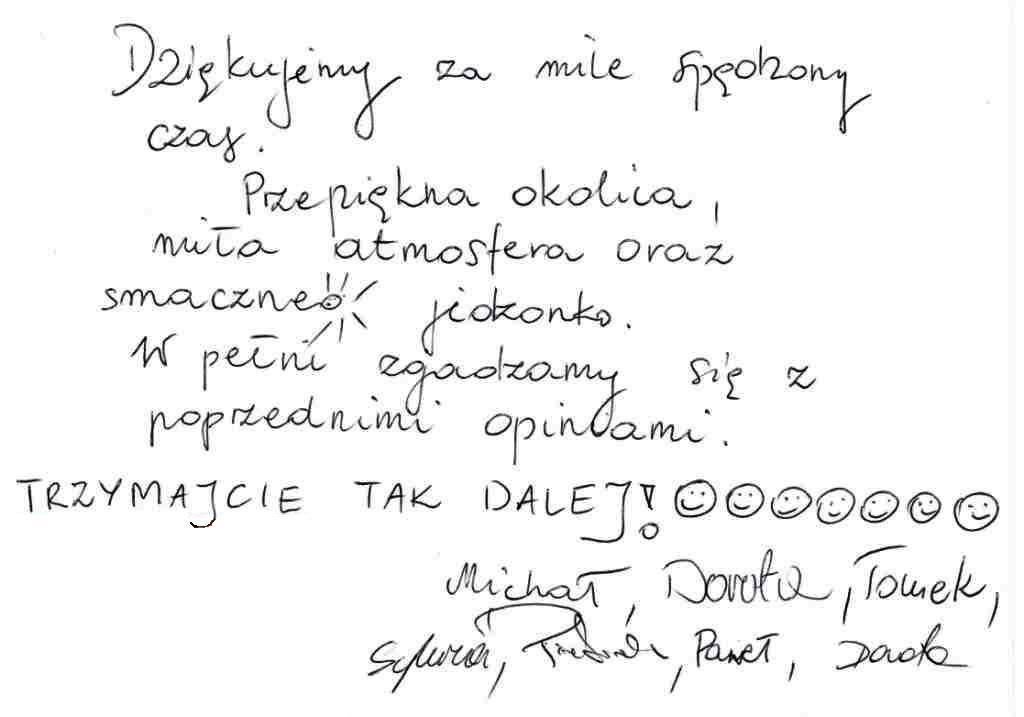 Dziękujemy za mile spędzony
czas.
Przepiękna okolica,
miła atmosfera oraz
smaczne jedzonko.
W pełni zgadzamy się z
poprzednimi opiniami.
TRZYMAJCIE TAK DALEJ! ☺☺☺☺☺☺☺
Michał, Dorota, Tomek,
Sylwia, Paweł,